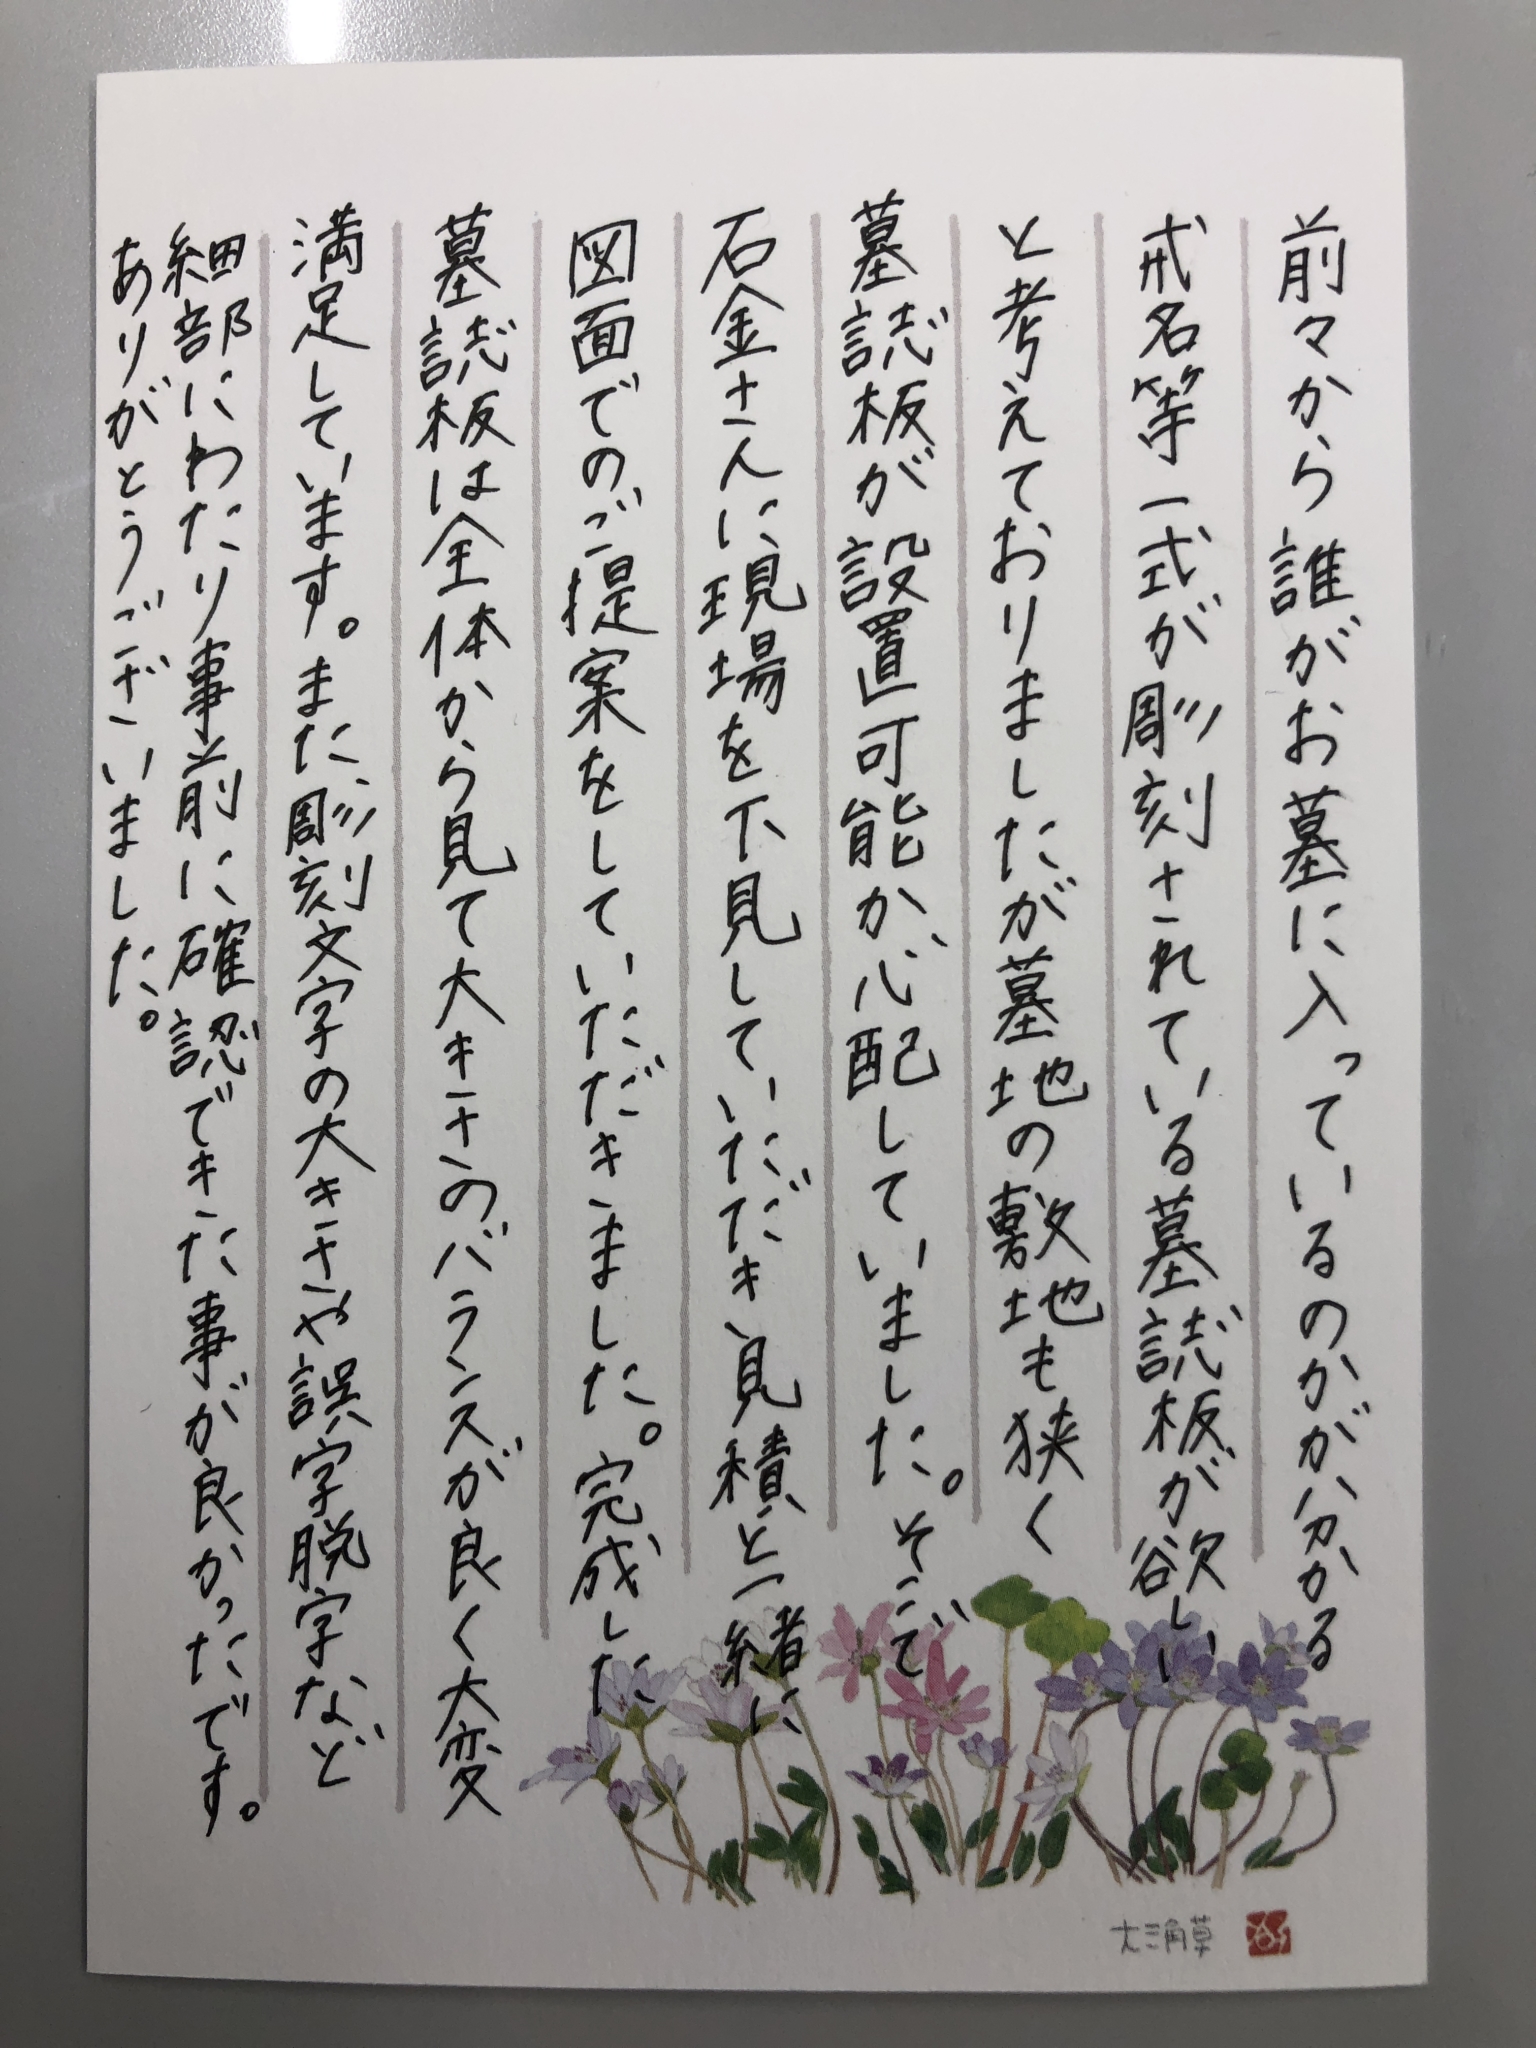 前々から誰がお墓に入っているのかが分かる
戒名等一式が彫刻されている墓誌板が欲しい
と考えておりましたが墓地の敷地も狭く
墓誌板が設置可能か心配していました。そこで
石金さんに現場を下見していただき見積と一緒に
図面でのご提案をしていただきました。完成した
墓誌板は全体から見て大きさのバランスが良く大変
満足しています。また彫刻文字の大きさや誤字脱字など
細部にわたり事前に確認できた事が良かったです。
ありがとうございました。
大三角草